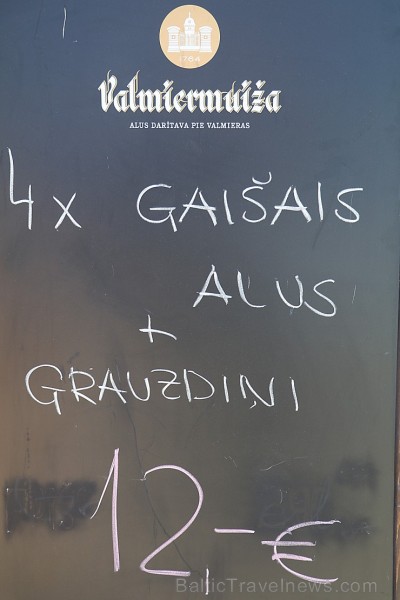 1764
Valmiermuiža
ALUS DARĪTAVA PIE VALMIERAS
4x GAIŠAIS
ALUS
+
GRAUZDIŅI
12,-€
BalticTravelnews.com